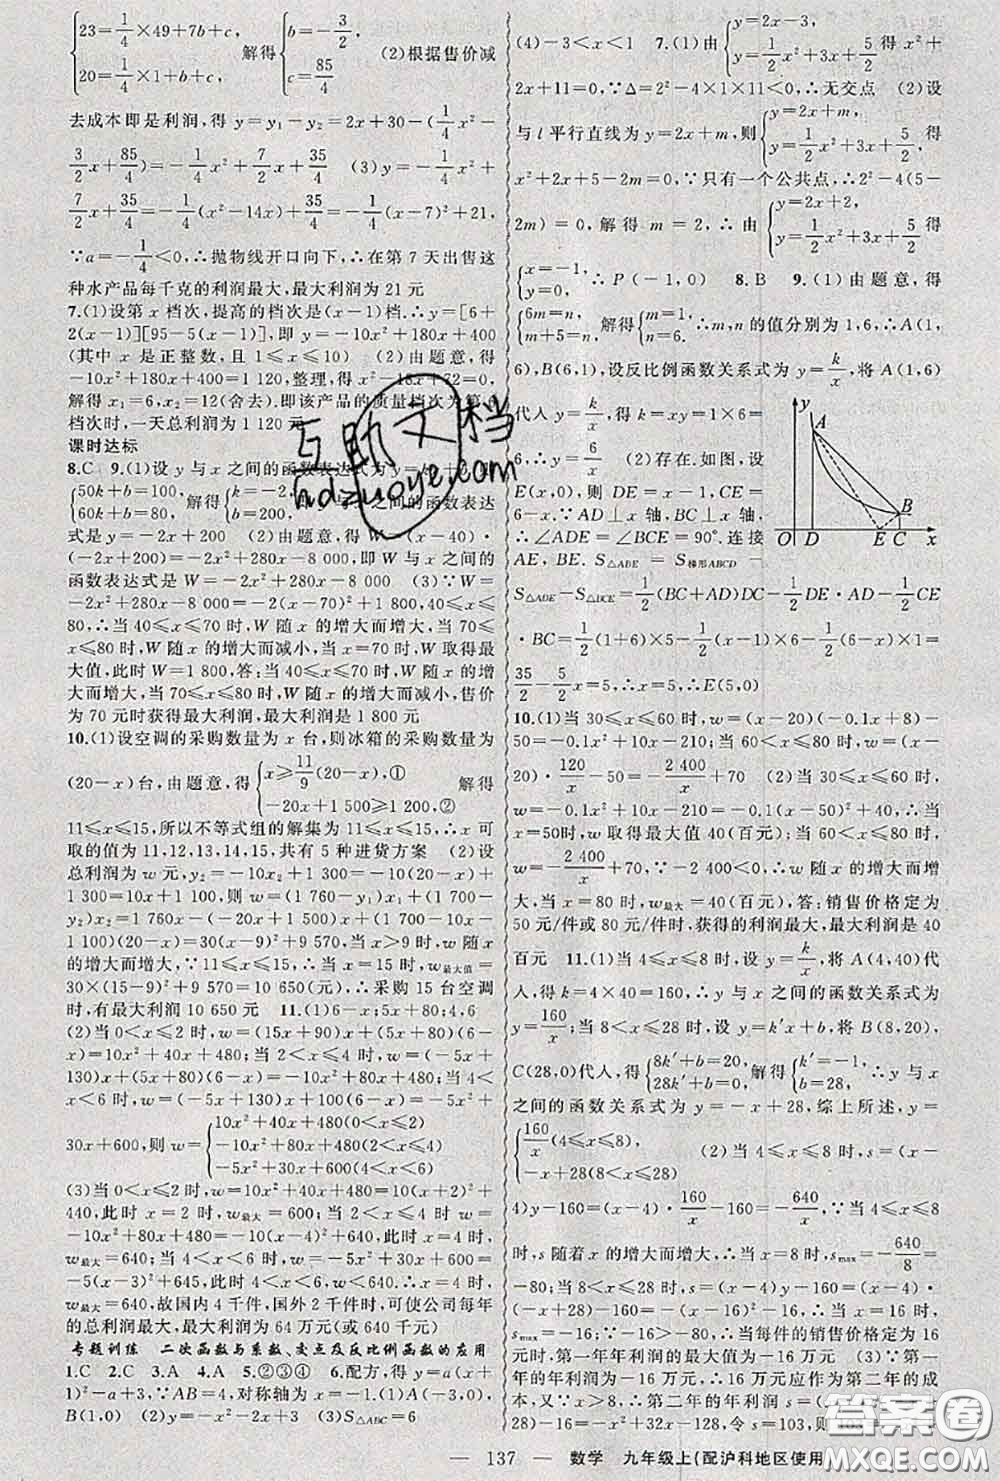 {23=1/4×49+7b+c, 20=1/4×1+b+c, 解得 {b=-3/2, c=85/4 (2)根据售价减
去成本即是利润,得 y=y₁-y₂=2x+30-(1/4x²-
3/2x+85/4)=-1/4x²+7/2x+35/4 (3)y=-1/4x²+
7/2x+35/4=-1/4(x²-14x)+35/4=-1/4(x-7)²+21,
∵a=-1/4<0,∴抛物线开口向下,∴在第 7 天出售这
种水产品每千克的利润最大,最大利润为 21 元
7.(1)设第 x 档次,提高的档次是(x-1)档.∴y=[6+
2(x-1)][95-5(x-1)],即 y=-10x²+180x+400
(其中 x 是正整数,且 1≤x≤10) (2)由题意,得
-10x²+180x+400=1 120,整理,得 x²-18x+72=0,
解得 x₁=6,x₂=12(舍去).即该产品的质量档次为第 6
档次时,一天总利润为 1 120 元
课时达标
8.C 9.(1)设 y 与 x 之间的函数表达式为 y=
{50k+b=100, 60k+b=80, 解得 {k=-2, b=200, 之间的函数表达
式是 y=-2x+200 (2)由题意,得 W=(x-40)·
(-2x+200)=-2x²+280x-8 000,即 W 与 x 之间的
函数表达式是 W=-2x²+280x-8 000 (3)∵W=
-2x²+280x-8 000=-2(x-70)²+1 800,40≤x≤
80,∴当 40≤x≤70 时,W 随 x 的增大而增大,当 70≤
x≤80 时,W 随 x 的增大而减小,当 x=70 时,W 取得最
大值,此时 W=1 800,答:当 40≤x≤70 时,W 随 x 的增
大而增大,当 70≤x≤80 时,W 随 x 的增大而减小,售价
为 70 元时获得最大利润,最大利润是 1 800 元
10.(1)设空调的采购数量为 x 台,则冰箱的采购数量为
(20-x)台,由题意,得 {x≥11/9(20-x),① -20x+1 500≥1 200,② 解得
11≤x≤15,所以不等式组的解集为 11≤x≤15,∴x 可
取的值为 11,12,13,14,15,共有 5 种进货方案 (2)设
总利润为 w 元,y₂=-10x₂+1 300=-10(20-x)+
1 300=10x+1 100,则 w=(1 760-y₁)x₁+(1 700-
y₂)x₂=1 760x-(-20x+1 500)x+(1 700-10x-
1 100)(20-x)=30(x-9)²+9 570,当 x>9 时,w 随 x
的增大而增大,∵11≤x≤15,∴当 x=15 时,w最大值=
30×(15-9)²+9 570=10 650(元),∴采购 15 台空调
时,有最大利润 10 650 元 11.(1)6-x;5x+80;4,6
(2)当 0<x≤2 时,w=(15x+90)x+(5x+80)(6-
x)=10x²+40x+480;当 2<x≤4 时,w=(-5x+
130)x+(5x+80)(6-x)=-10x²+80x+480;当 4<
x<6 时,w=(-5x+130)x+100(6-x)=-5x²+
30x+600,则 w={10x²+40x+480(0<x≤2) -10x²+80x+480(2<x≤4) -5x²+30x+600(4<x<6)
(3)当 0<x≤2 时,w=10x²+40x+480=10(x+2)²+
440,此时 x=2 时,w最大=600;当 2<x≤4 时,w=
-10x²+80x+480=-10(x-4)²+640,此时 x=4 时,
w最大=640;当 4<x<6 时,w=-5x²+30x+600=
-5(x-3)²+645,当 4<x<6 时,w<640,∴x=4 时,
w最大=640,故该公司每年国内 4 千件,国外 2 千件时,可使公司每年
的总利润最大,最大利润为 64 万元(或 640 千元)
专题训练 二次函数与系数、交点及反比例函数的应用
1.C 2.C 3.A 4.A 5.②③④ 6.配方,得 y=a(x+
1)²-a+3,∵AB=4,对称轴为 x=-1,∴A(-3,0),
B(1,0) (2)y=-x²-2x+3 (3)S△ABC=6
(4)-3<x<1 7.(1)由 {y=2x-3, y=1/2x²+3x+5/2 得 x²+
2x+11=0,∵Δ=2²-4×1×11<0,∴无交点 (2)设
与 l 平行直线为 y=2x+m,则 {y=2x+m, y=1/2x²+3x+5/2, 得
x²+2x+5-2m=0,∵只有一个公共点,∴2²-4(5-
2m)=0,解得 m=2,∴由 {y=2x+2, y=1/2x²+3x+5/2 得
{x=-1, y=0, ∴P(-1,0) 8.B 9.(1)由题意,得
{6m=n, m+5=n, 解得 {m=1, n=6. ∴m,n 的值分别为 1,6,∴A(1,
6),B(6,1),设反比例函数关系式为 y=k/x,将 A(1,6)
代入 y=k/x,得 k=xy=1×6=
6,∴y=6/x (2)存在.如图,设
E(x,0),则 DE=x-1,CE=
6-x.∵AD⊥x 轴,BC⊥x 轴,
∴∠ADE=∠BCE=90°.连接
AE,BE. S△ABE=S梯形ABCD-
S△ADE-S△BCE=1/2(BC+AD)CD-1/2DE·AD-1/2CE
·BC=1/2(1+6)×5-1/2(x-1)×6-1/2(6-x)×1=
35/2-5/2x=5,∴x=5,∴E(5,0)
A
B
O D E C x
10.(1)当 30≤x≤60 时,w=(x-20)(-0.1x+8)-
50=-0.1x²+10x-210;当 60<x≤80 时,w=(x-
20)·120/x-50=-2 400/x+70 (2)当 30≤x≤60 时,
w=-0.1x²+10x-210=-0.1(x-50)²+40,∴当
x=50时,w 取得最大值 40(百元);当 60<x≤80 时,
w=-2 400/x+70,∵-2 400<0,∴w 随 x 的增大而增
大,当 x=80 时,w最大=40(百元),答:销售价格定为
50 元/件或 80 元/件时,获得的年利润最大,最大利润是 40
百元 11.(1)当 4≤x≤8 时,设 y=k/x,将 A(4,40)代
入,得 k=4×40=160,∴y 与 x 之间的函数关系式为
y=160/x;当 8<x≤28 时,设 y=k′x+b,将 B(8,20),
C(28,0)代入,得 {8k′+b=20, 28k′+b=0, 解得 {k′=-1, b=28, ∴y 与 x
之间的函数关系式为 y=-x+28,综上所述,y=
{160/x(4≤x≤8), -x+28(8<x≤28) (2)当 4≤x≤8 时,s=(x-
4)y-160=(x-4)·160/x-160=-640/x,∵当 4≤x≤8
时,s 随着 x 的增大而增大,∴当 x=8 时,smax=-640/8=
-80;当 8<x≤28 时,s=(x-4)y-160=(x-4)·
(-x+28)-160=-(x-16)²-16,∴当 x=16 时,
smax=-16,∵-16>-80,∴当每件的销售价格定为 16
元时,第一年年利润的最大值为-16 万元 (3)∵第一
年的年利润为-16 万元,∴16 万元应作为第二年的成
本,又∵x>8,∴第二年的年利润 s=(x-4)(-x+
28)-16=-x²+32x-128,令 s=103,则103=
互助文档
hdzuoye.com
答案圈
MXQE.COM
— 137 — 数学 九年级上(配沪科地区使用